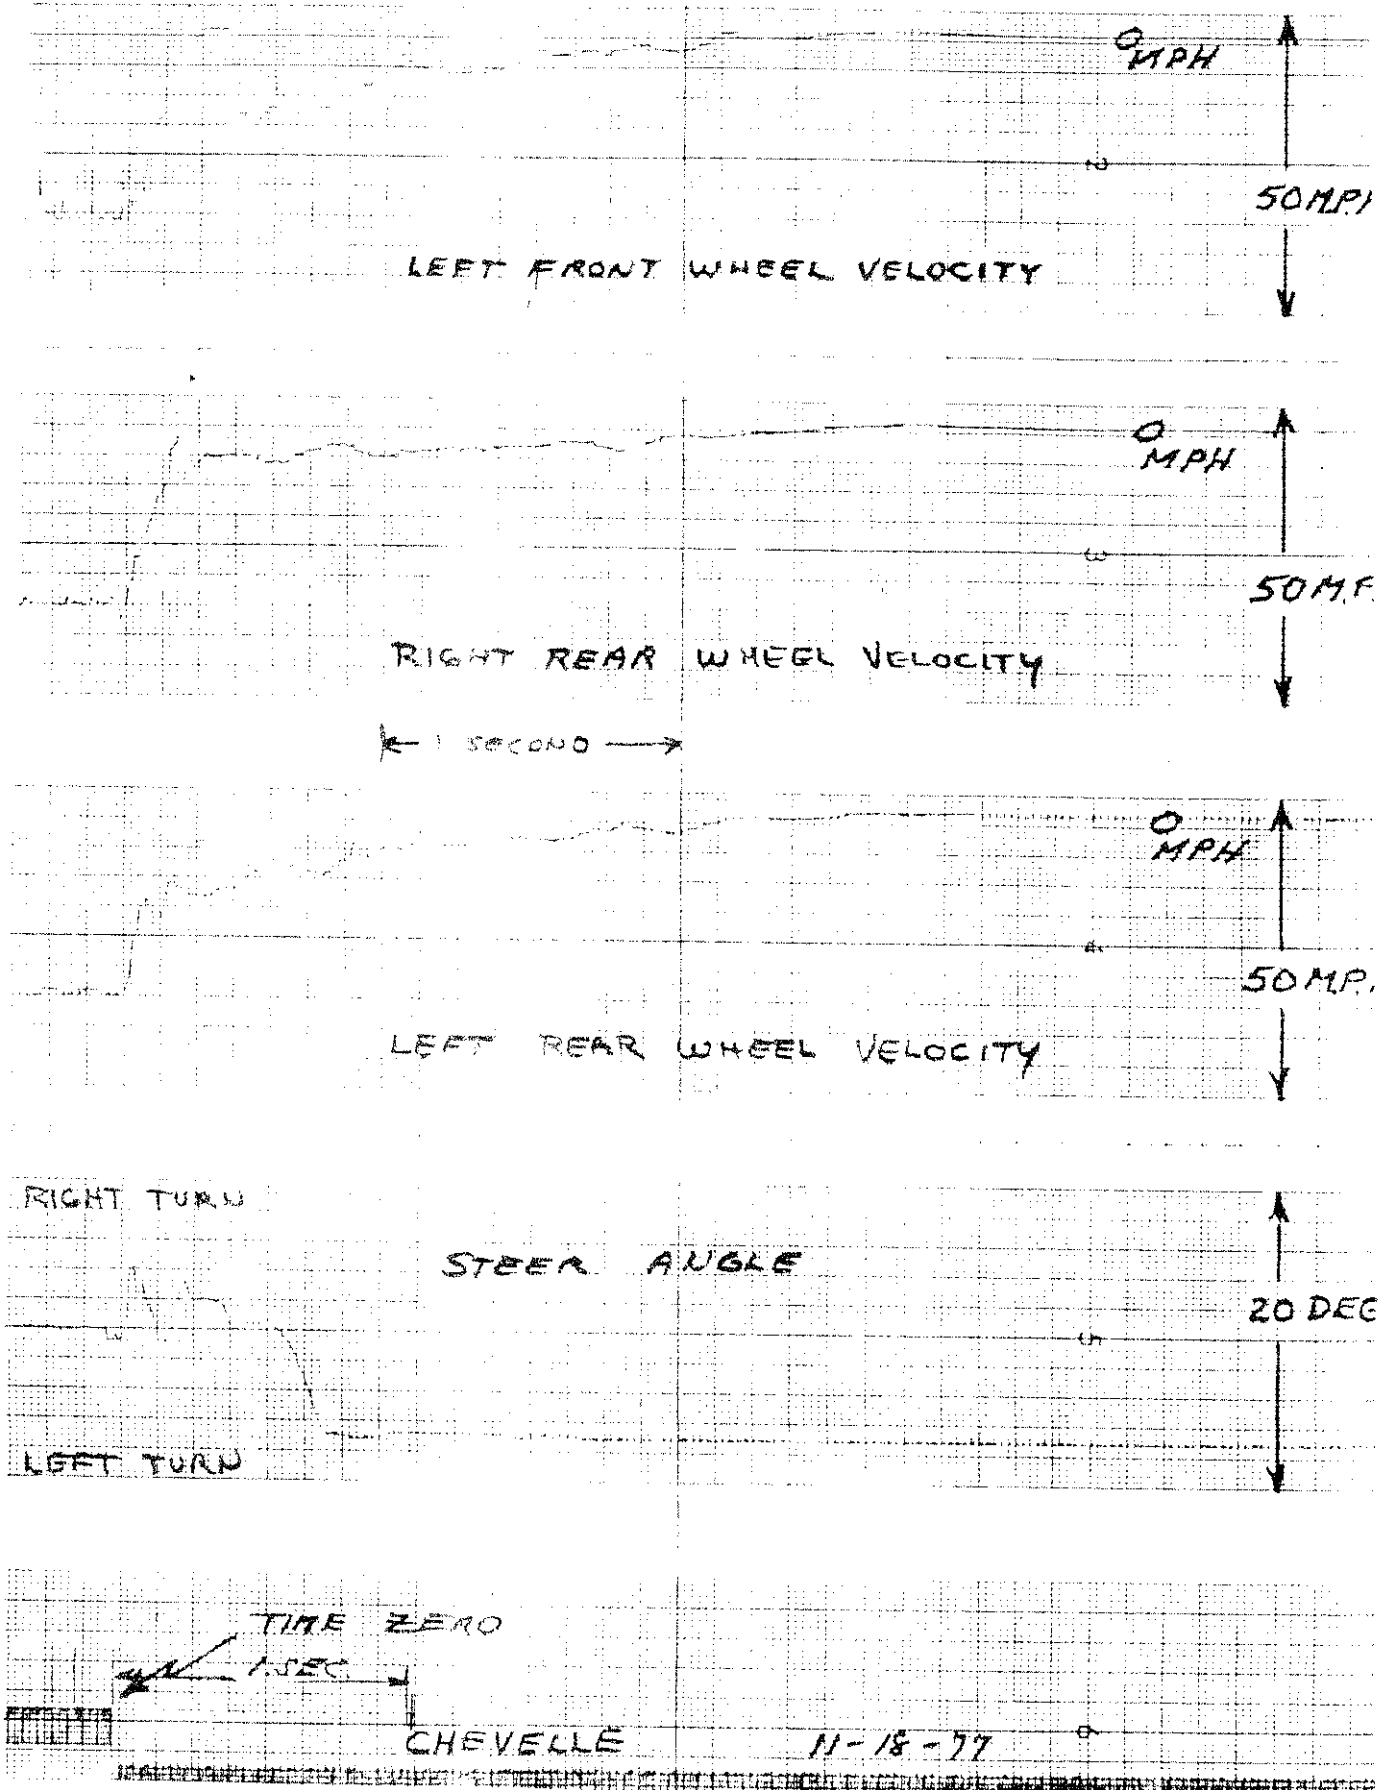 O
MPH
2
50 M.P.
LEFT FRONT WHEEL VELOCITY
O
MPH
3
50 M.P.
RIGHT REAR WHEEL VELOCITY
1 SECOND
O
MPH
4
50 M.P.
LEFT REAR WHEEL VELOCITY
RIGHT TURN
STEER ANGLE
20 DEG
5
LEFT TURN
TIME ZERO
1 SEC.
CHEVELLE 11-18-77
6